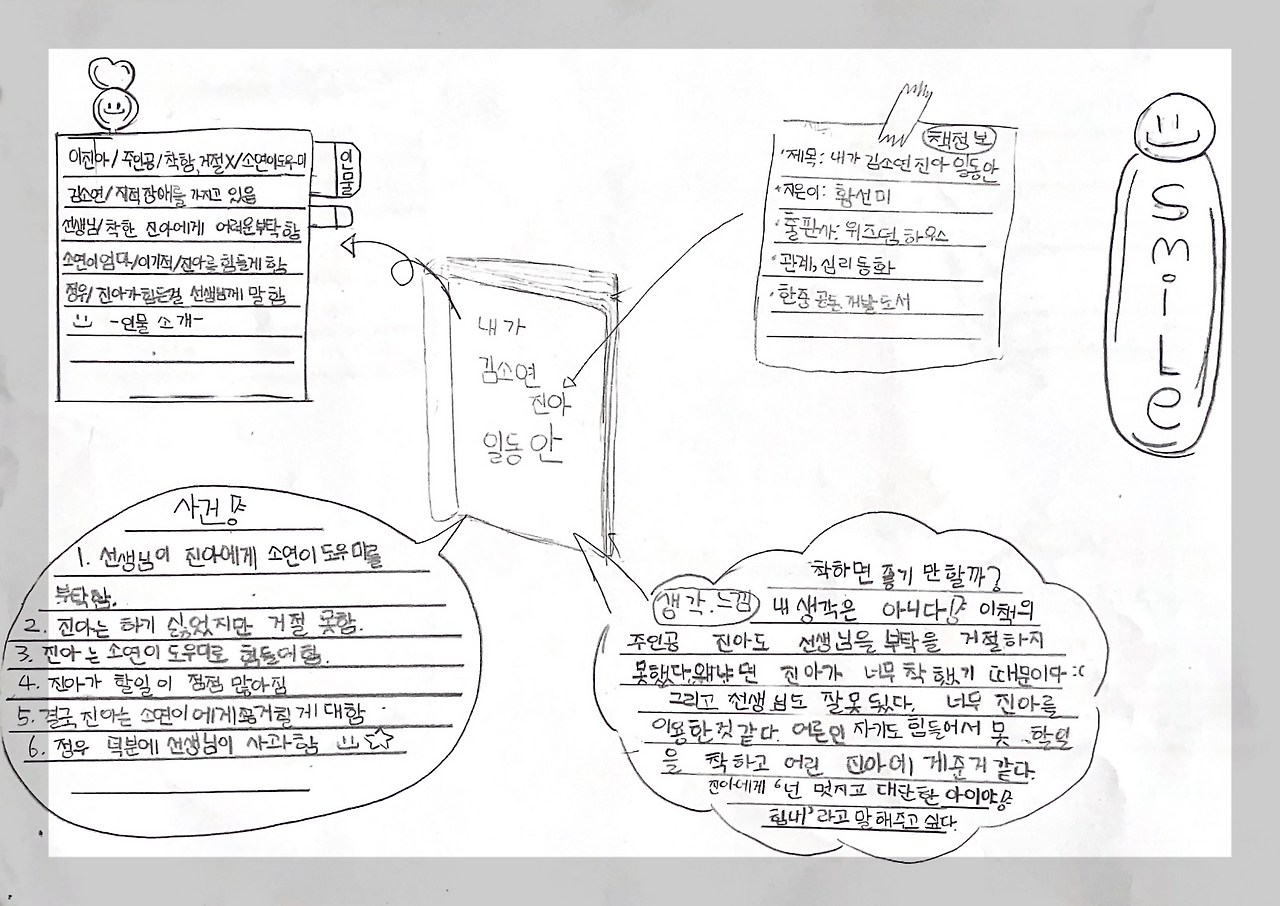 이진아/주인공/착함,거절X/소연이도우미
김소연/지적장애를 가지고 있음
선생님/착한 진아에게 어려운부탁함
소연이엄마/이기적/진아를 힘들게함
정우/진아가힘든걸 선생님께 말함
-인물 소개-
인물
책정보
제목: 내가 김소연진아 일동안
지은이: 황선미
출판사: 위즈덤하우스
관계,심리동화
한중 공동개발도서
SMiLe
내가
김소연
진아
일동안
사건
1. 선생님이 진아에게 소연이도우미를
부탁함.
2. 진아는 하기 싫었지만 거절 못함.
3. 진아는 소연이도우미로 힘들어함.
4. 진아가 할일이 점점 많아짐
5. 결국,진아는 소연이에게 대함
6. 정우 덕분에 선생님이 사과함
착하면 좋기 만할까?
생각.느낌
내 생각은 아니다! 이책의
주인공 진아도 선생님을 부탁을 거절하지
못했다,왜냐면 진아가 너무 착했기 때문이다:(
그리고 선생님도 잘못됬다. 너무 진아를
이용한것 같다. 어른인 자기도 힘들어서 못 할일
을 착하고 어린 진아에게준거 같다.
진아에게 '넌 멋지고 대단한 아이야
힘내'라고 말해주고 싶다.